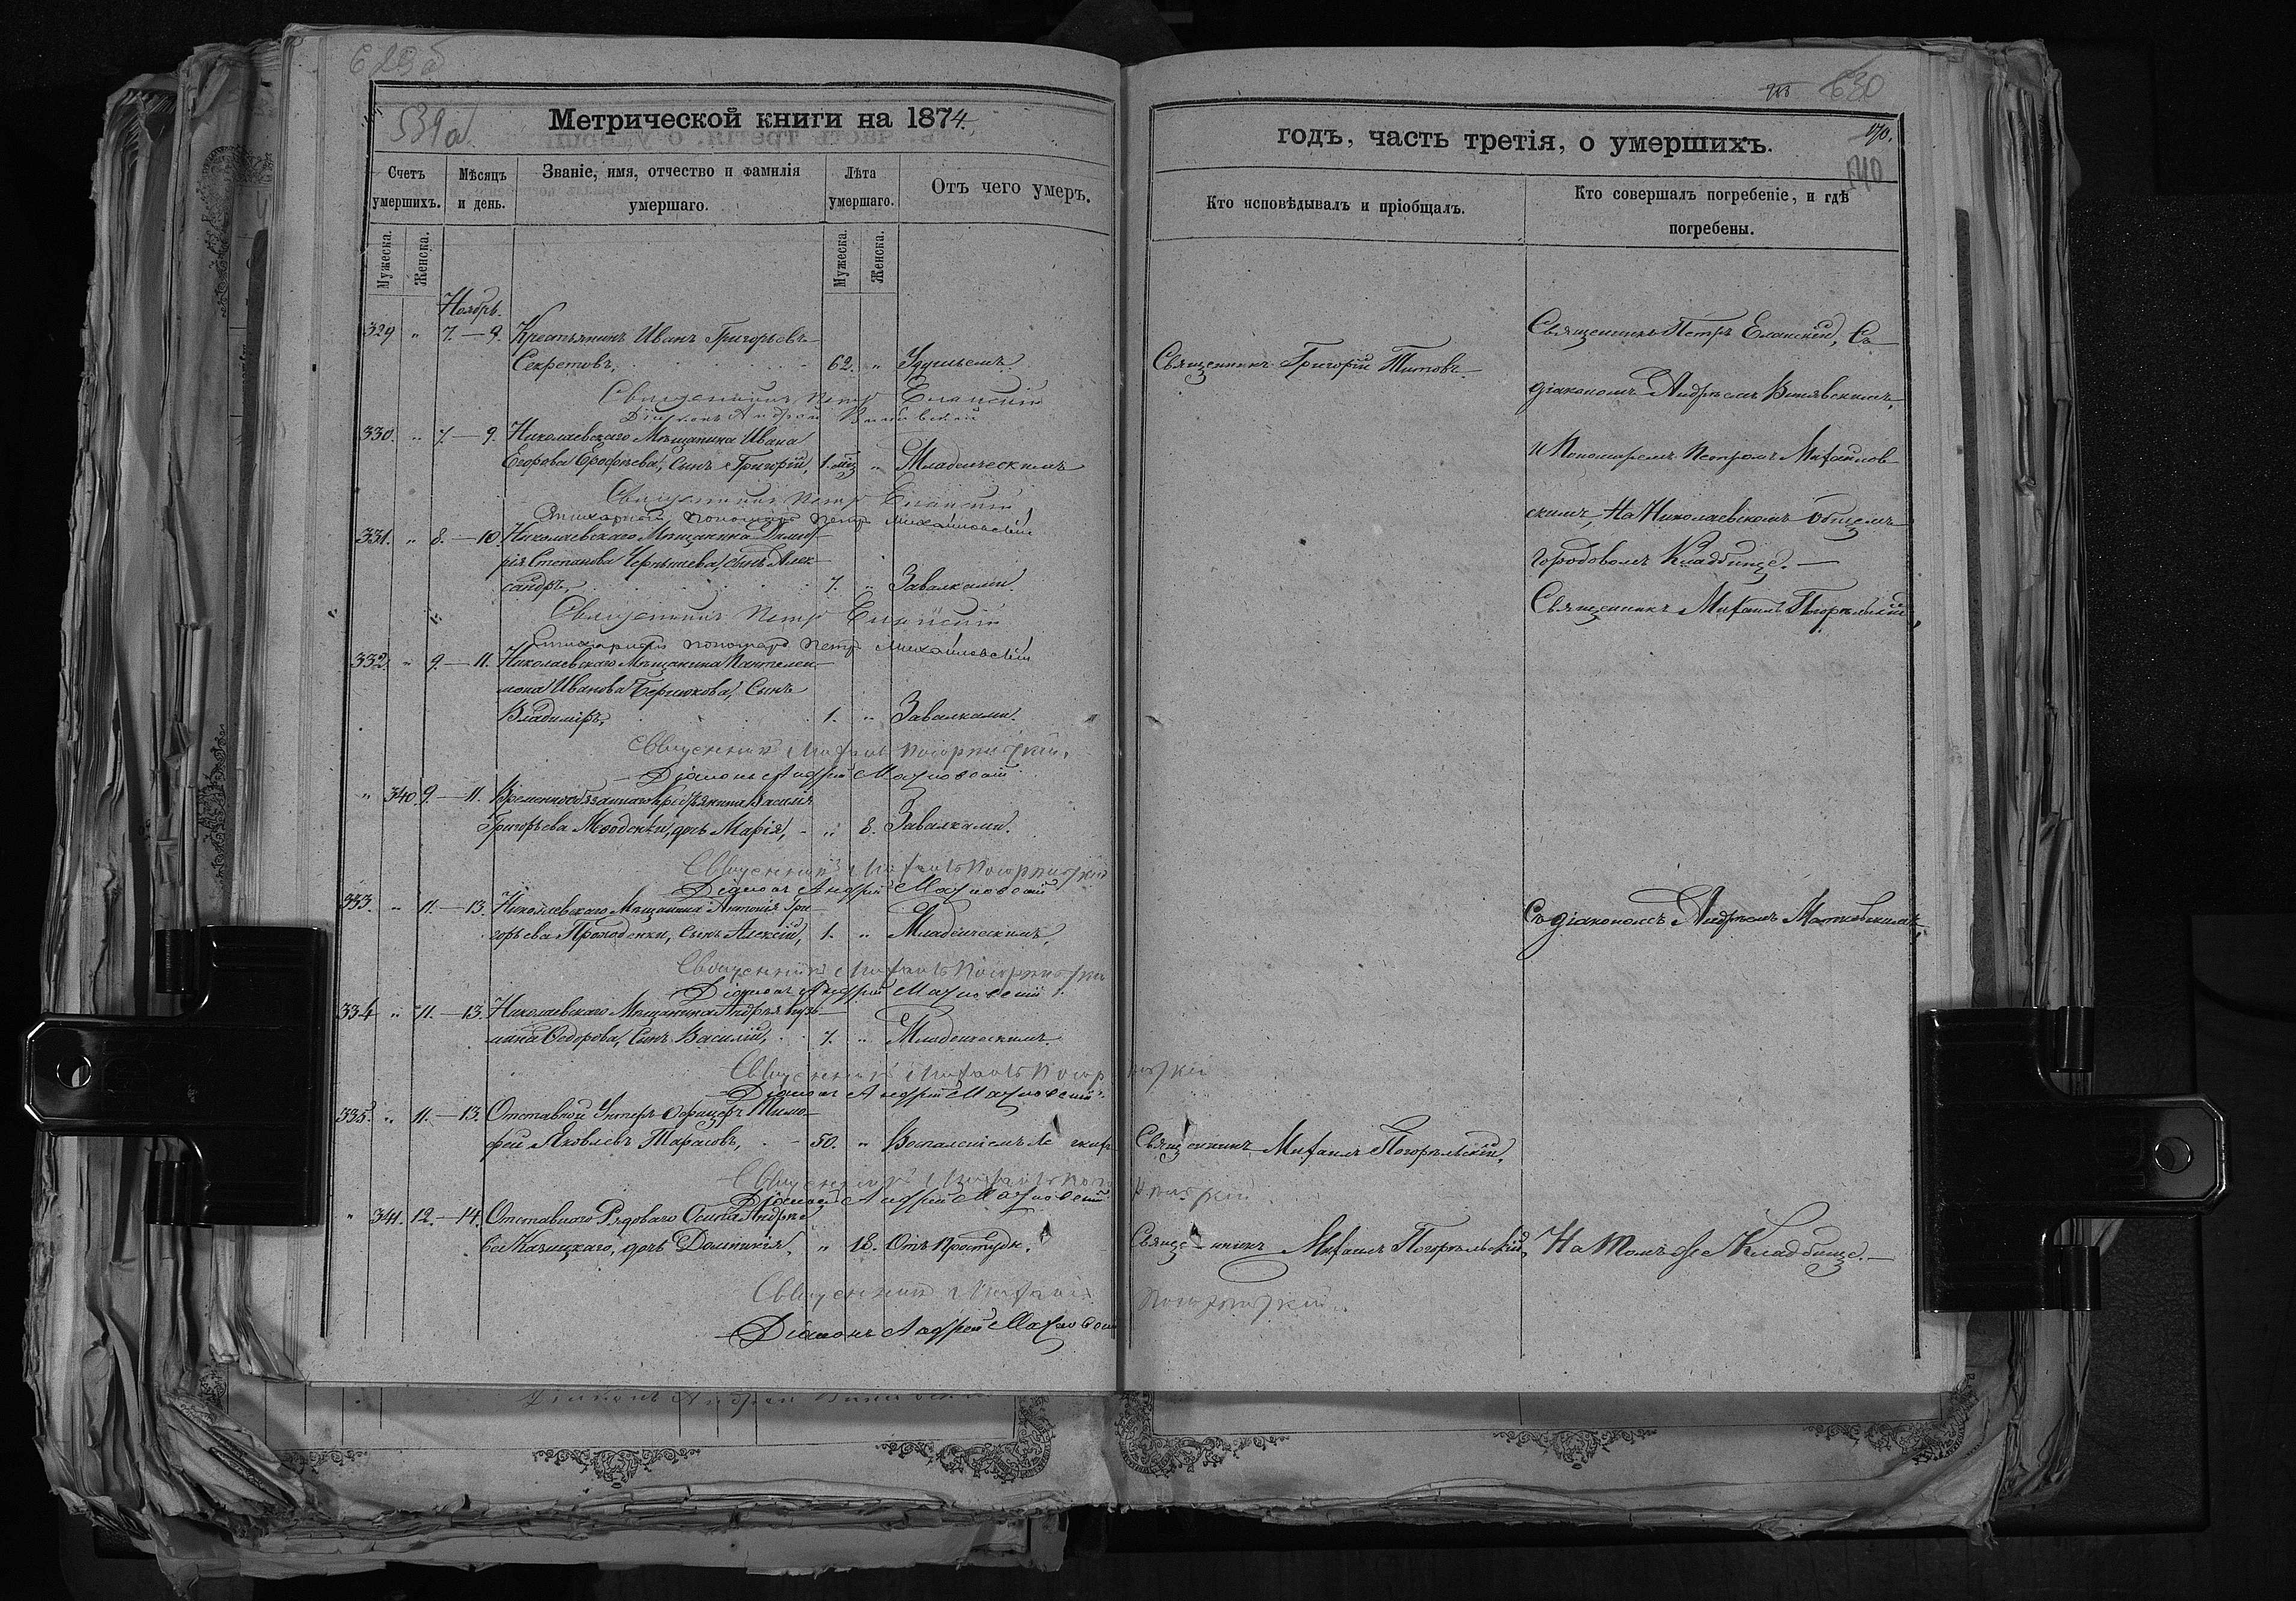 629 б
539 а
Метрической книги на 1874.
Счетъ умершихъ.
Мѣсяцъ и день.
Званіе, имя, отчество и фамилія умершаго.
Лѣта умершаго.
Отъ чего умеръ.
Мужеска.
Женска.
Мужеска.
Женска.
Ноябрь.
329 " 7.—9. Крестьянинъ Иванъ Григорьевъ
Секретовъ, 62. " Удушьемъ.
Священникъ Петръ Еланскій
Діаконъ Андрей
330. " 7.—9. Николаевскаго Мѣщанина Ивана
Егорова Ерофѣева, сынъ Григорій, 1. мѣс " Младенческимъ
Священникъ Петръ Еланскій
Стихарный пономарь Петръ Михайловскій
331. " 8.—10. Николаевскаго Мѣщанина Димит-
рія Степанова Чернышева, сынъ Алек-
сандръ, 7. " Завалками.
Священникъ Петръ Еланскій
Стихарный пономарь Петръ Михайловскій
332. " 9.—11. Николаевскаго Мѣщанина Пантелеи-
мона Иванова Бернюкова, Сынъ
Владиміръ, 1. " Завалками.
Священникъ Михаилъ Погорѣльскій
Діаконъ Андрей
" 340. 9.—11. Временнообязаннаго Крестьянина Василія
Григорьева дочь Марія, " 8. Завалками.
Священникъ Михаилъ Погорѣльскій
Діаконъ Андрей
333. " 11.—13. Николаевскаго Мѣщанина Антонія Гри-
горьева Проходенки, сынъ Алексій, 1. " Младенческимъ,
Священникъ Михаилъ Погорѣльскій
Діаконъ Андрей
334 " 11.—13. Николаевскаго Мѣщанина Андрея Кузь-
мина Ѳедорова, Сынъ Василій, 7. " Младенческимъ.
Священникъ Михаилъ Погорѣльскій
Діаконъ Андрей
335. " 11.—13. Отставной Унтеръ Офицеръ Тимо-
фей Яковлевъ Тарасовъ, 50. " Воспаленіемъ
Священникъ Михаилъ Погорѣльскій
Діаконъ Андрей
" 341. 12.—14. Отставнаго Рядоваго Осипа Андрѣе
ва Казицкаго, дочь Домникія, " 18. Отъ Простуды.
Священникъ Михаилъ Погорѣльскій
Діаконъ Андрей
630
170.
540
годъ, часть третія, о умершихъ.
Кто исповѣдывалъ и пріобщалъ.
Кто совершалъ погребеніе, и гдѣ погребены.
Священникъ Григорій Титовъ.
Священникъ Петръ Еланскій, Съ
діакономъ Андреемъ
и Пономаремъ Петромъ Михайлов
скимъ, На Николаевскомъ общемъ
городовомъ Кладбищѣ.—
Священникъ Михаилъ Погорѣльскій,
Съ діакономъ Андреемъ
Священникъ Михаилъ Погорѣльскій,
Священникъ Михаилъ Погорѣльскій,
На томъ же Кладбищѣ.—